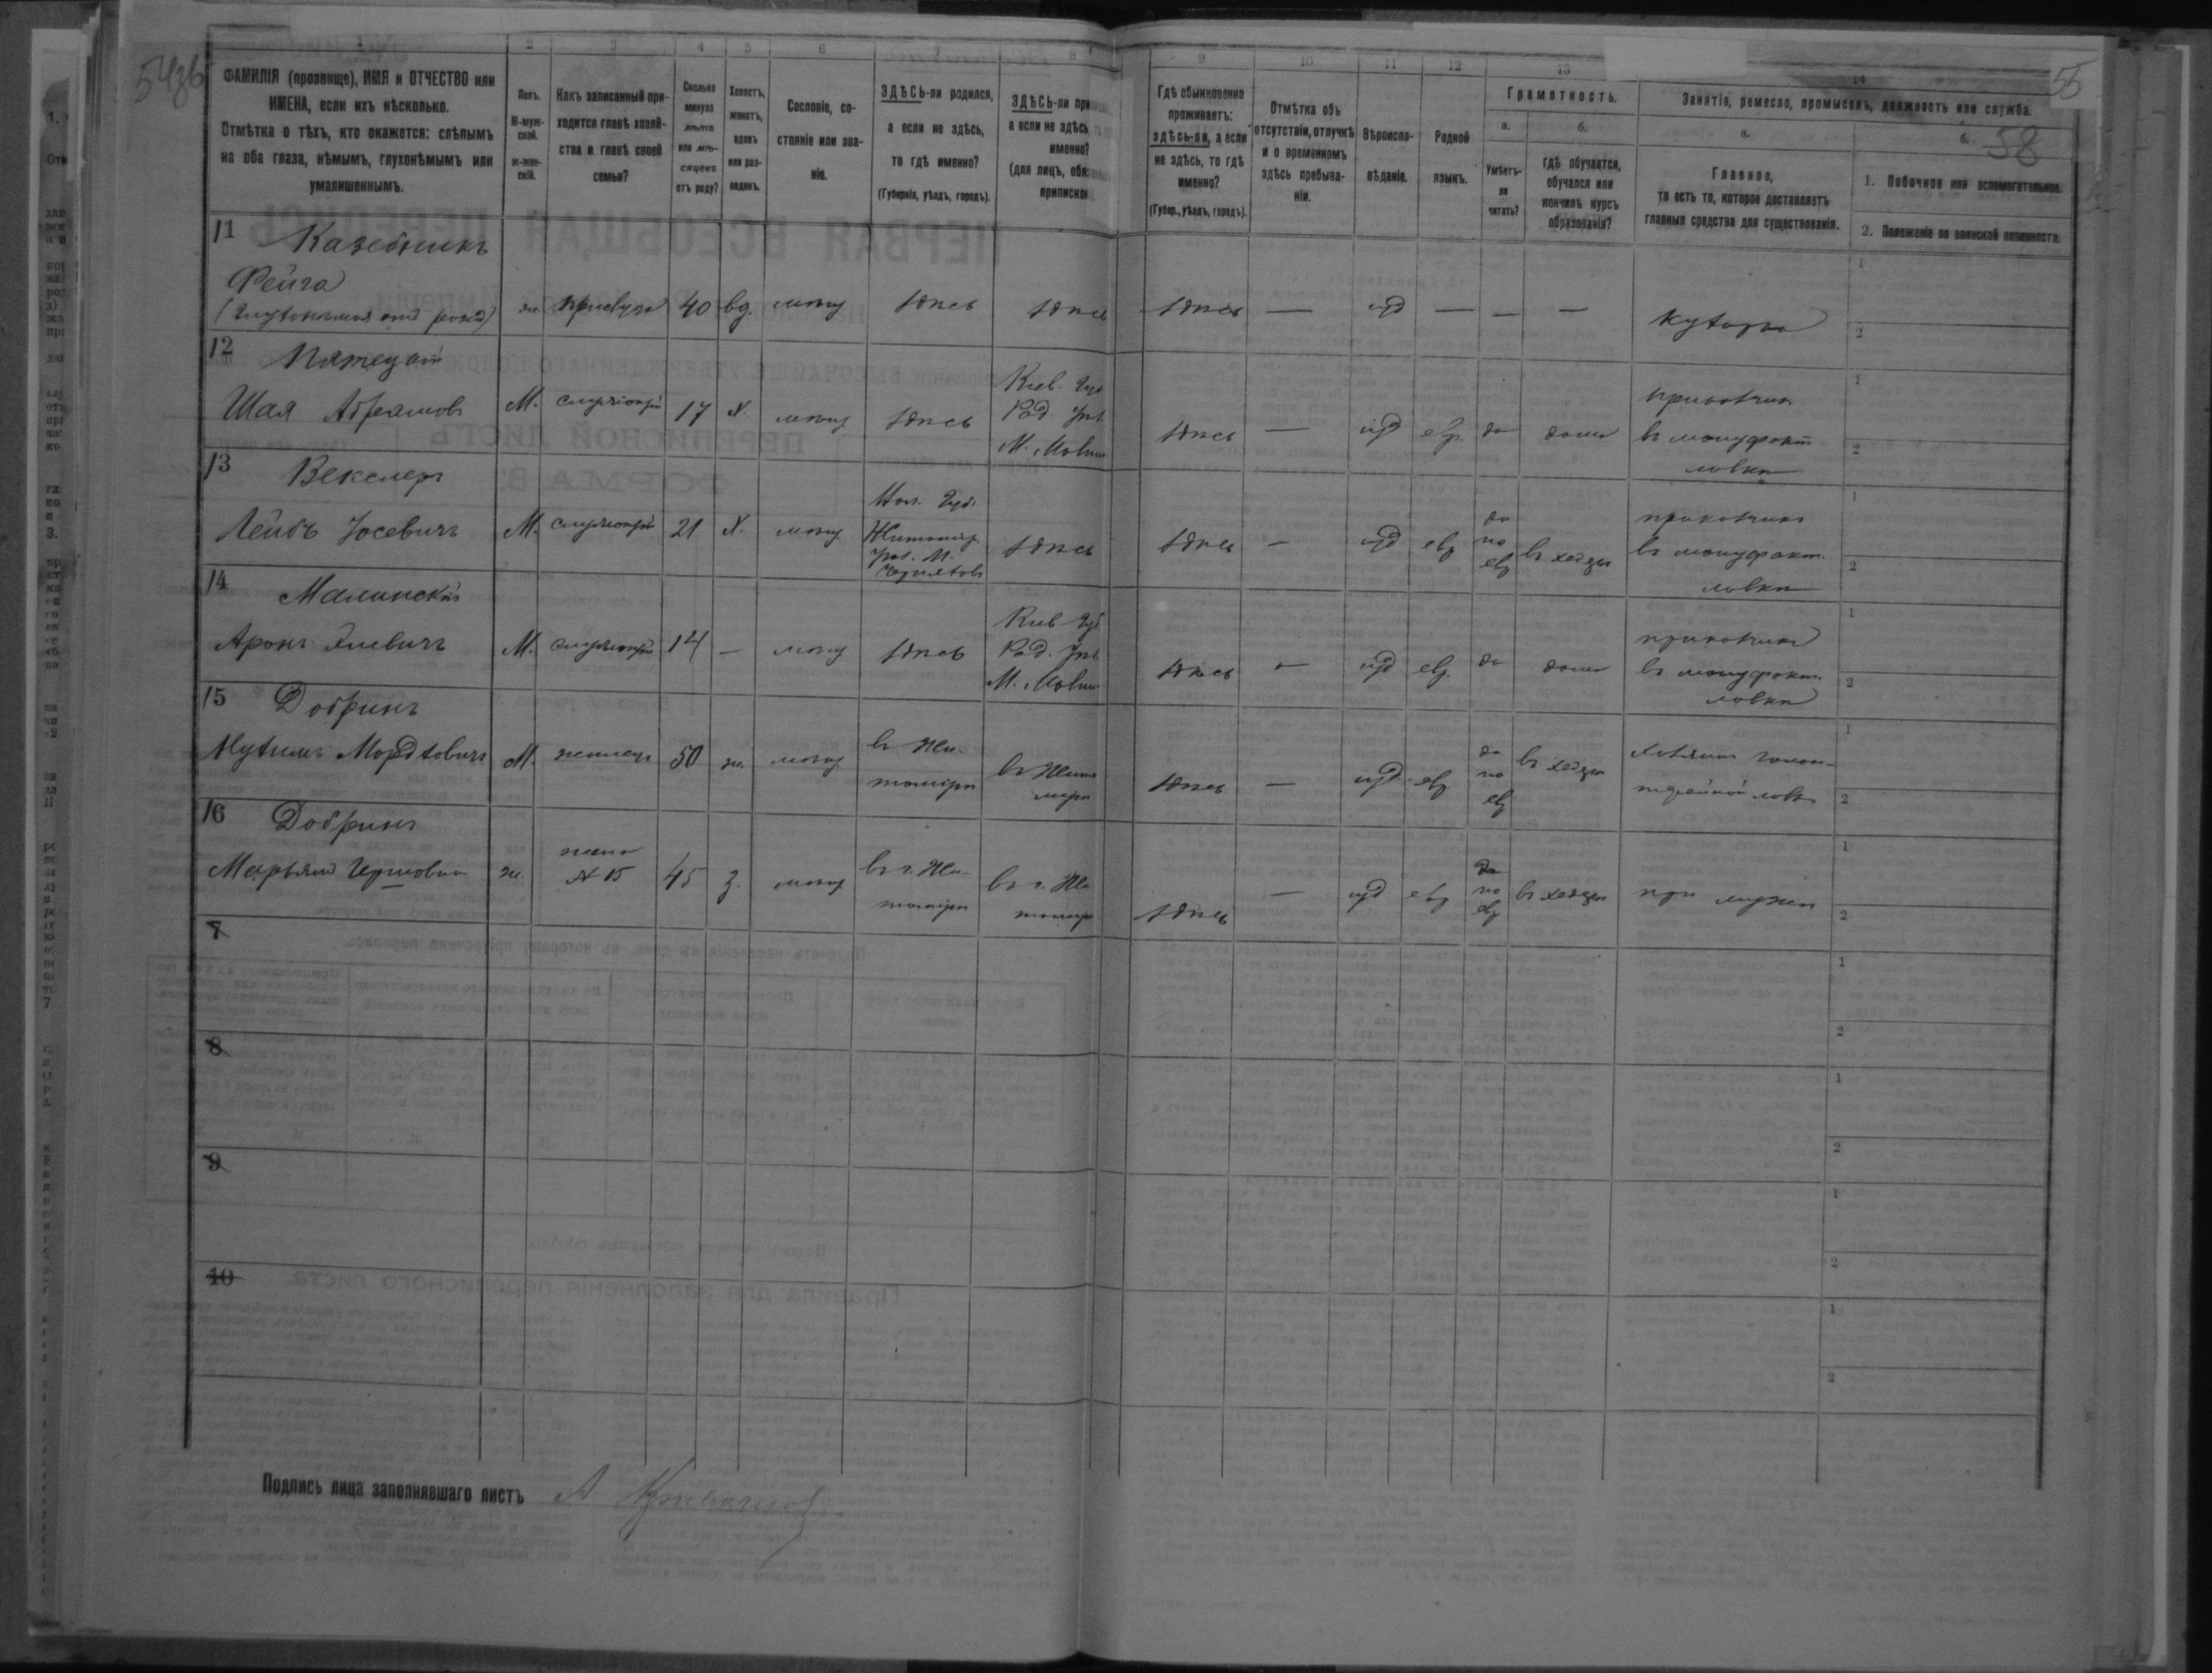 55
58
1 2 3 4 5 6 7 8 9 10 11 12 13 14
ФАМИЛІЯ (прозвище), ИМЯ и ОТЧЕСТВО или ИМЕНА, если ихъ нѣсколько.
Отмѣтка о тѣхъ, кто окажется: слѣпымъ на оба глаза, нѣмымъ, глухонѣмымъ или умалишеннымъ.
Полъ.
М-муж-
ской.
ж-жен-
скій.
Какъ записанный при-
ходится главѣ хозяй-
ства и главѣ своей
семьи?
Сколько
минуло
лѣтъ
или мѣ-
сяцевъ
отъ роду?
Холостъ,
женатъ,
вдовъ
или раз-
веденъ.
Сословіе, со-
стояніе или зва-
ніе.
ЗДѢСЬ-ли родился,
а если не здѣсь,
то гдѣ именно?
(Губернія, уѣздъ, городъ).
ЗДѢСЬ-ли при
а если не здѣсь,
именно?
(для лицъ, обя
припискѣ
Гдѣ обыкновенно
проживаетъ:
здѣсь-ли, а если
не здѣсь, то гдѣ
именно?
(Губер., уѣздъ, городъ).
Отмѣтка объ
отсутствіи, отлучкѣ
и о временномъ
здѣсь пребыва-
ніи.
Вѣроиспо-
вѣданіе.
Родной
языкъ.
Грамотность.
а.
Умѣетъ-
ли
читать?
б.
гдѣ обучается,
обучался или
кончилъ курсъ
образованія?
Занятіе, ремесло, промыселъ, должность или служба.
а.
Главное,
то есть то, которое доставляетъ
главныя средства для существованія.
б.
1. Побочное или вспомогательное.
2. Положеніе по воинской повинности.
11 Казебникъ
Фейга
(Глухонѣмая отъ рожд)
ж. 40 вд. мѣщ здѣсь здѣсь здѣсь — іуд — — —
1
2
12
Шая Абрамовъ
М. служащій 17 х. мѣщ здѣсь
Кіев. Губ
Рад. Уѣз.
М.
здѣсь — іуд евр да дома
прикащикъ
въ мануфакт
лавкѣ
1
2
13 Векслеръ
Лейбъ Іосевичъ
М. служащій 21 х. мѣщ
Вол. Губ.
Житомір.
Уѣз. М.
здѣсь здѣсь — іуд евр
да
по
евр
въ хедерѣ
прикащикъ
въ мануфакт.
лавкѣ
1
2
14 Малинскій
Аронъ Элевичъ
М. служащій 14 — мѣщ здѣсь
Кіев Губ
Рад. Уѣз
М.
здѣсь — іуд евр. да дома
прикащикъ
въ мануфакт.
лавкѣ
1
2
15 Добринъ
Нутимъ Мордковичъ
М. жилецъ 50 ж. мѣщ
въ Жи-
томірѣ
въ Жито
мірѣ
здѣсь — іуд евр
да
по
евр
въ хедерѣ
хозяинъ галан-
терейной лавки
1
2
16 Добринъ
Марьямъ Герцовна
ж.
жена
№ 15
45 з. мѣщ
въ г. Жи-
томірѣ
въ г. Жи
томірѣ
здѣсь — іуд евр
да
по
евр
въ хедерѣ
при мужѣ
1
2
7
1
2
8
1
2
9
1
2
10
1
2
Подпись лица заполнявшаго листъ